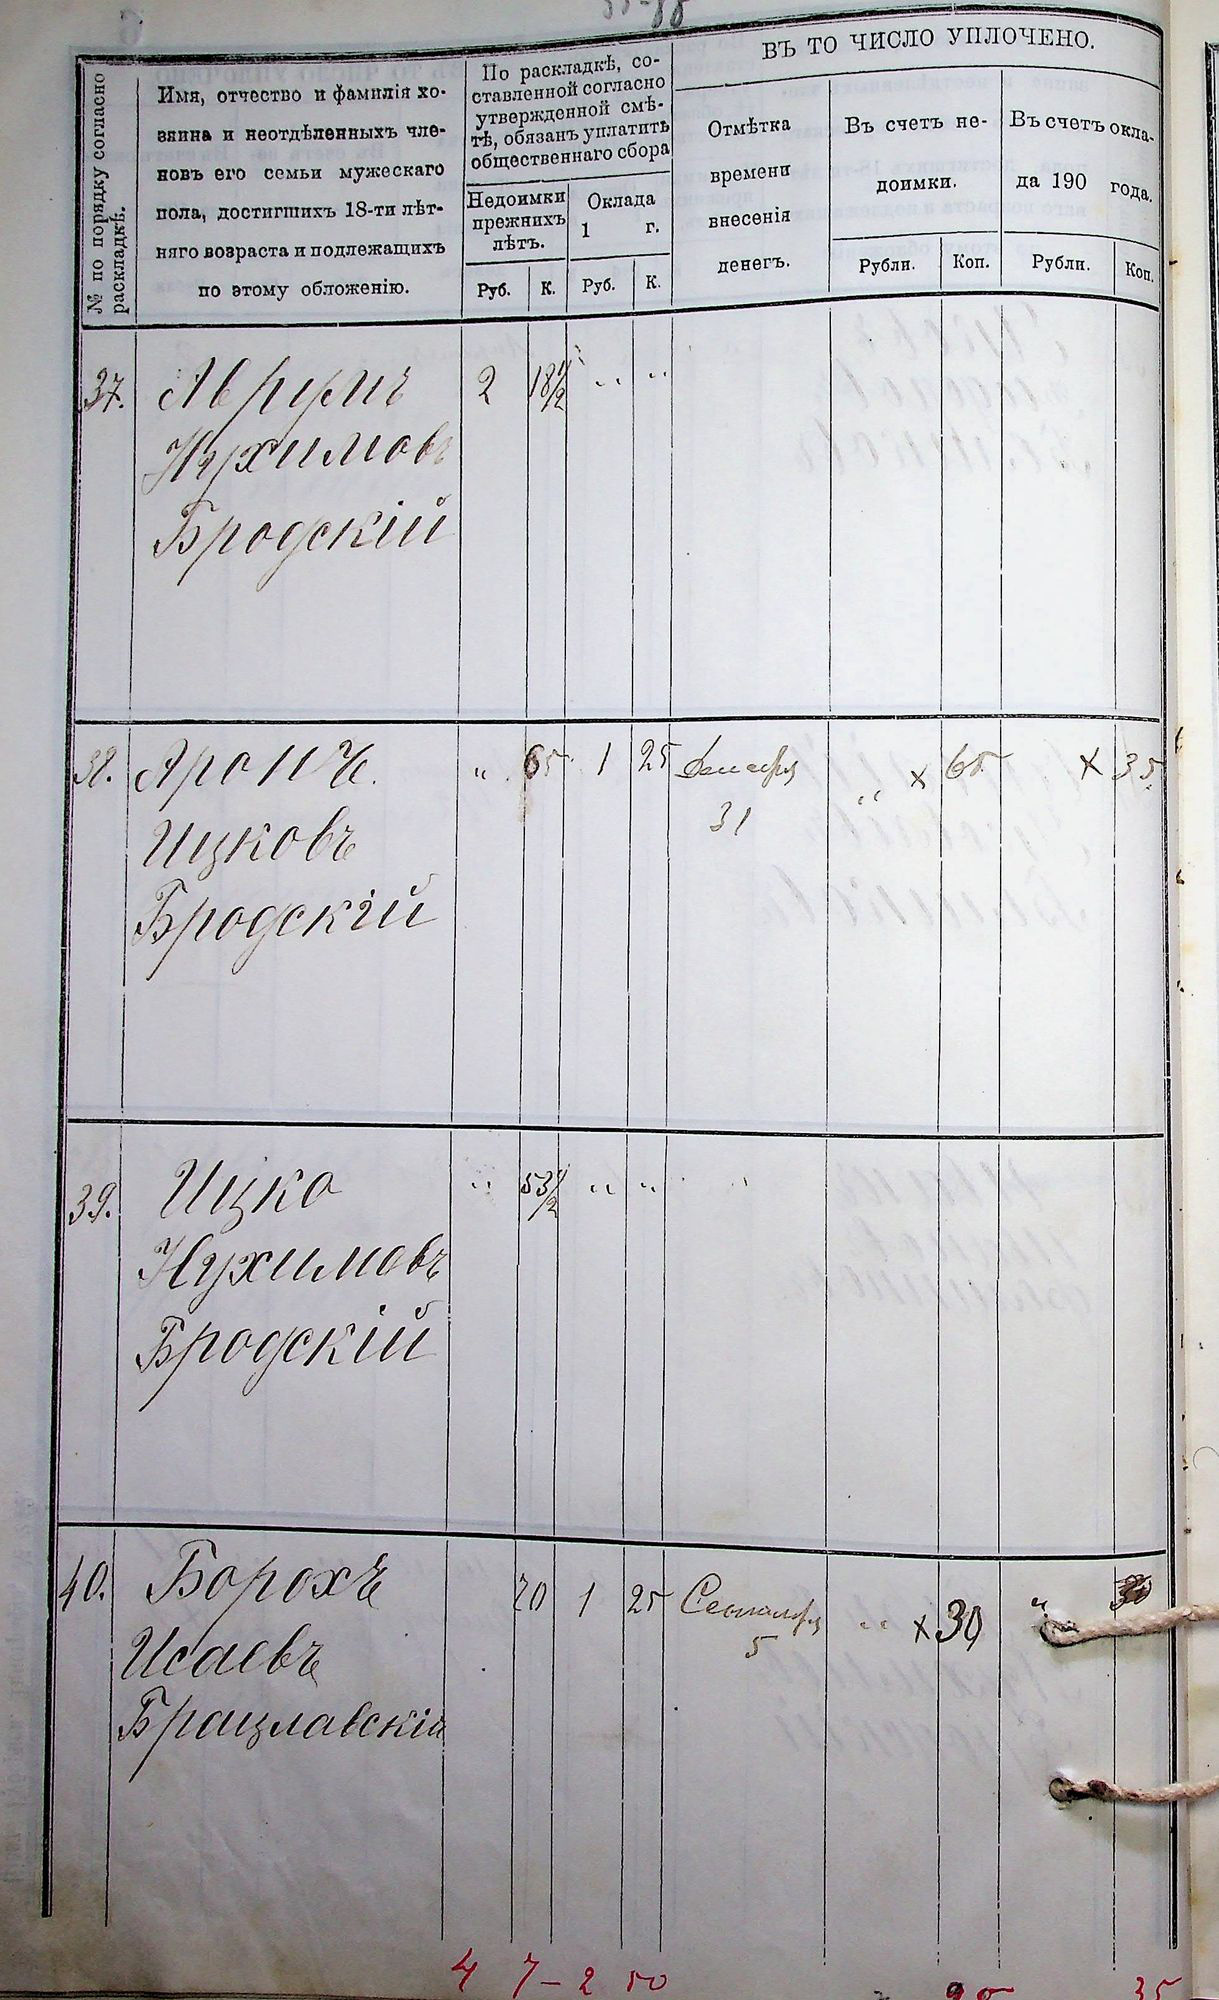 № по порядку согласно
раскладкѣ.
Имя, отчество и фамилія хо-
зяина и неотдѣленныхъ чле-
новъ его семьи мужескаго
пола, достигшихъ 18-ти лѣт-
няго возраста и подлежащихъ
по этому обложенію.
По раскладкѣ, со-
ставленной согласно
утвержденной смѣ-
тѣ, обязанъ уплатить
общественнаго сбора
Недоимки
прежнихъ
лѣтъ.
Оклада
1 г.
Руб. К. Руб. К.
ВЪ ТО ЧИСЛО УПЛОЧЕНО.
Отмѣтка
времени
внесенія
денегъ.
Въ счетъ не-
доимки.
Въ счетъ окла-
да 190 года.
Рубли. Коп. Рубли. Коп.
37. Аврумъ 2 18 1/2 " "
Нухимовъ
Бродскій
38. Аронъ. " 65 1 25 Декабря " x 65 x 35
31
Ицковъ
Бродскій
39. Ицко " 53 1/2 " "
Нухимовъ
Бродскій
40. Борохъ 70 1 25 Сентября " x 30 "
5
Исаевъ
Брацлавскій
4 7 - 2 50 95 35